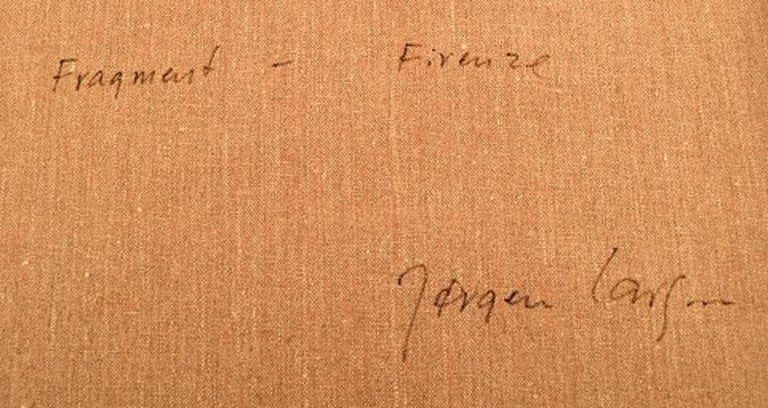 Fragment - Firenze
Jørgen Larsen